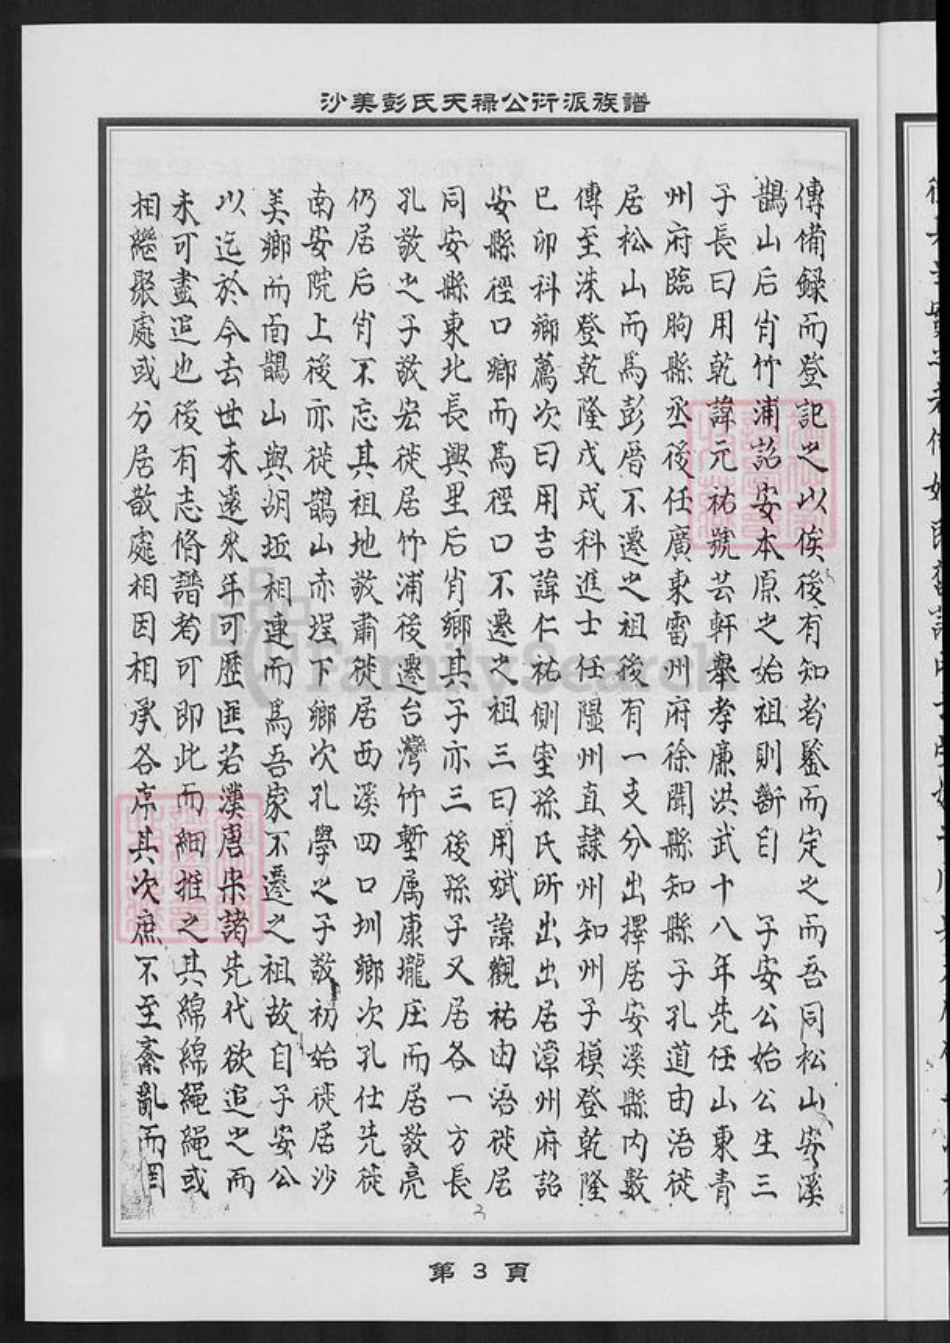 沙美彭氏天祿公衍派族譜
傳備録而登記之以俟後有知者鑒而定之而吾同松山安溪
鵲山后肖竹浦詔安本原之始祖則斷自 子安公始公生三
子長曰用乾諱元祐號芸軒舉孝廉洪武十八年先任山東青
州府臨朐縣丞後任廣東雷州府徐聞縣知縣子孔道由浯徙
居松山而為彭厝不遷之祖後有一支分出擇居安溪縣內數
傳至洙登乾隆戊戌科進士任隰州直隸州知州子模登乾隆
已卯科鄉薦次曰用吉諱仁祐側室孫氏所出出居漳州府詔
安縣徑口鄉而為徑口不遷之祖三曰用斌諱觀祐由浯徙居
同安縣東北長興里后肖鄉其子亦三後孫子又居各一方長
孔敬之子敬宏徙居竹浦後遷台灣竹塹属康壠庄而居敬亮
仍居后肖不忘其祖地敬肅徙居西溪四口圳鄉次孔仕先徙
南安院上後亦徙鵲山赤埕下鄉次孔學之子敬初始徙居沙
美鄉而面鵲山與胡坵相連而為吾家不遷之祖故自子安公
以迄於今去世未遠來年可歷匪若漢唐宋諸先代欲追之而
未可盡追也後有志脩譜者可即此而細推之其綿綿繩繩或
相繼聚處或分居散處相因相承各序其次庶不至紊亂而罔
第3頁
FamilySearch